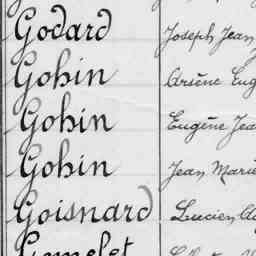 Godard Joseph Jean
Gohin Arsène Eug
Gohin Eugène Jea
Gohin Jean Marie
Goisnard Lucien